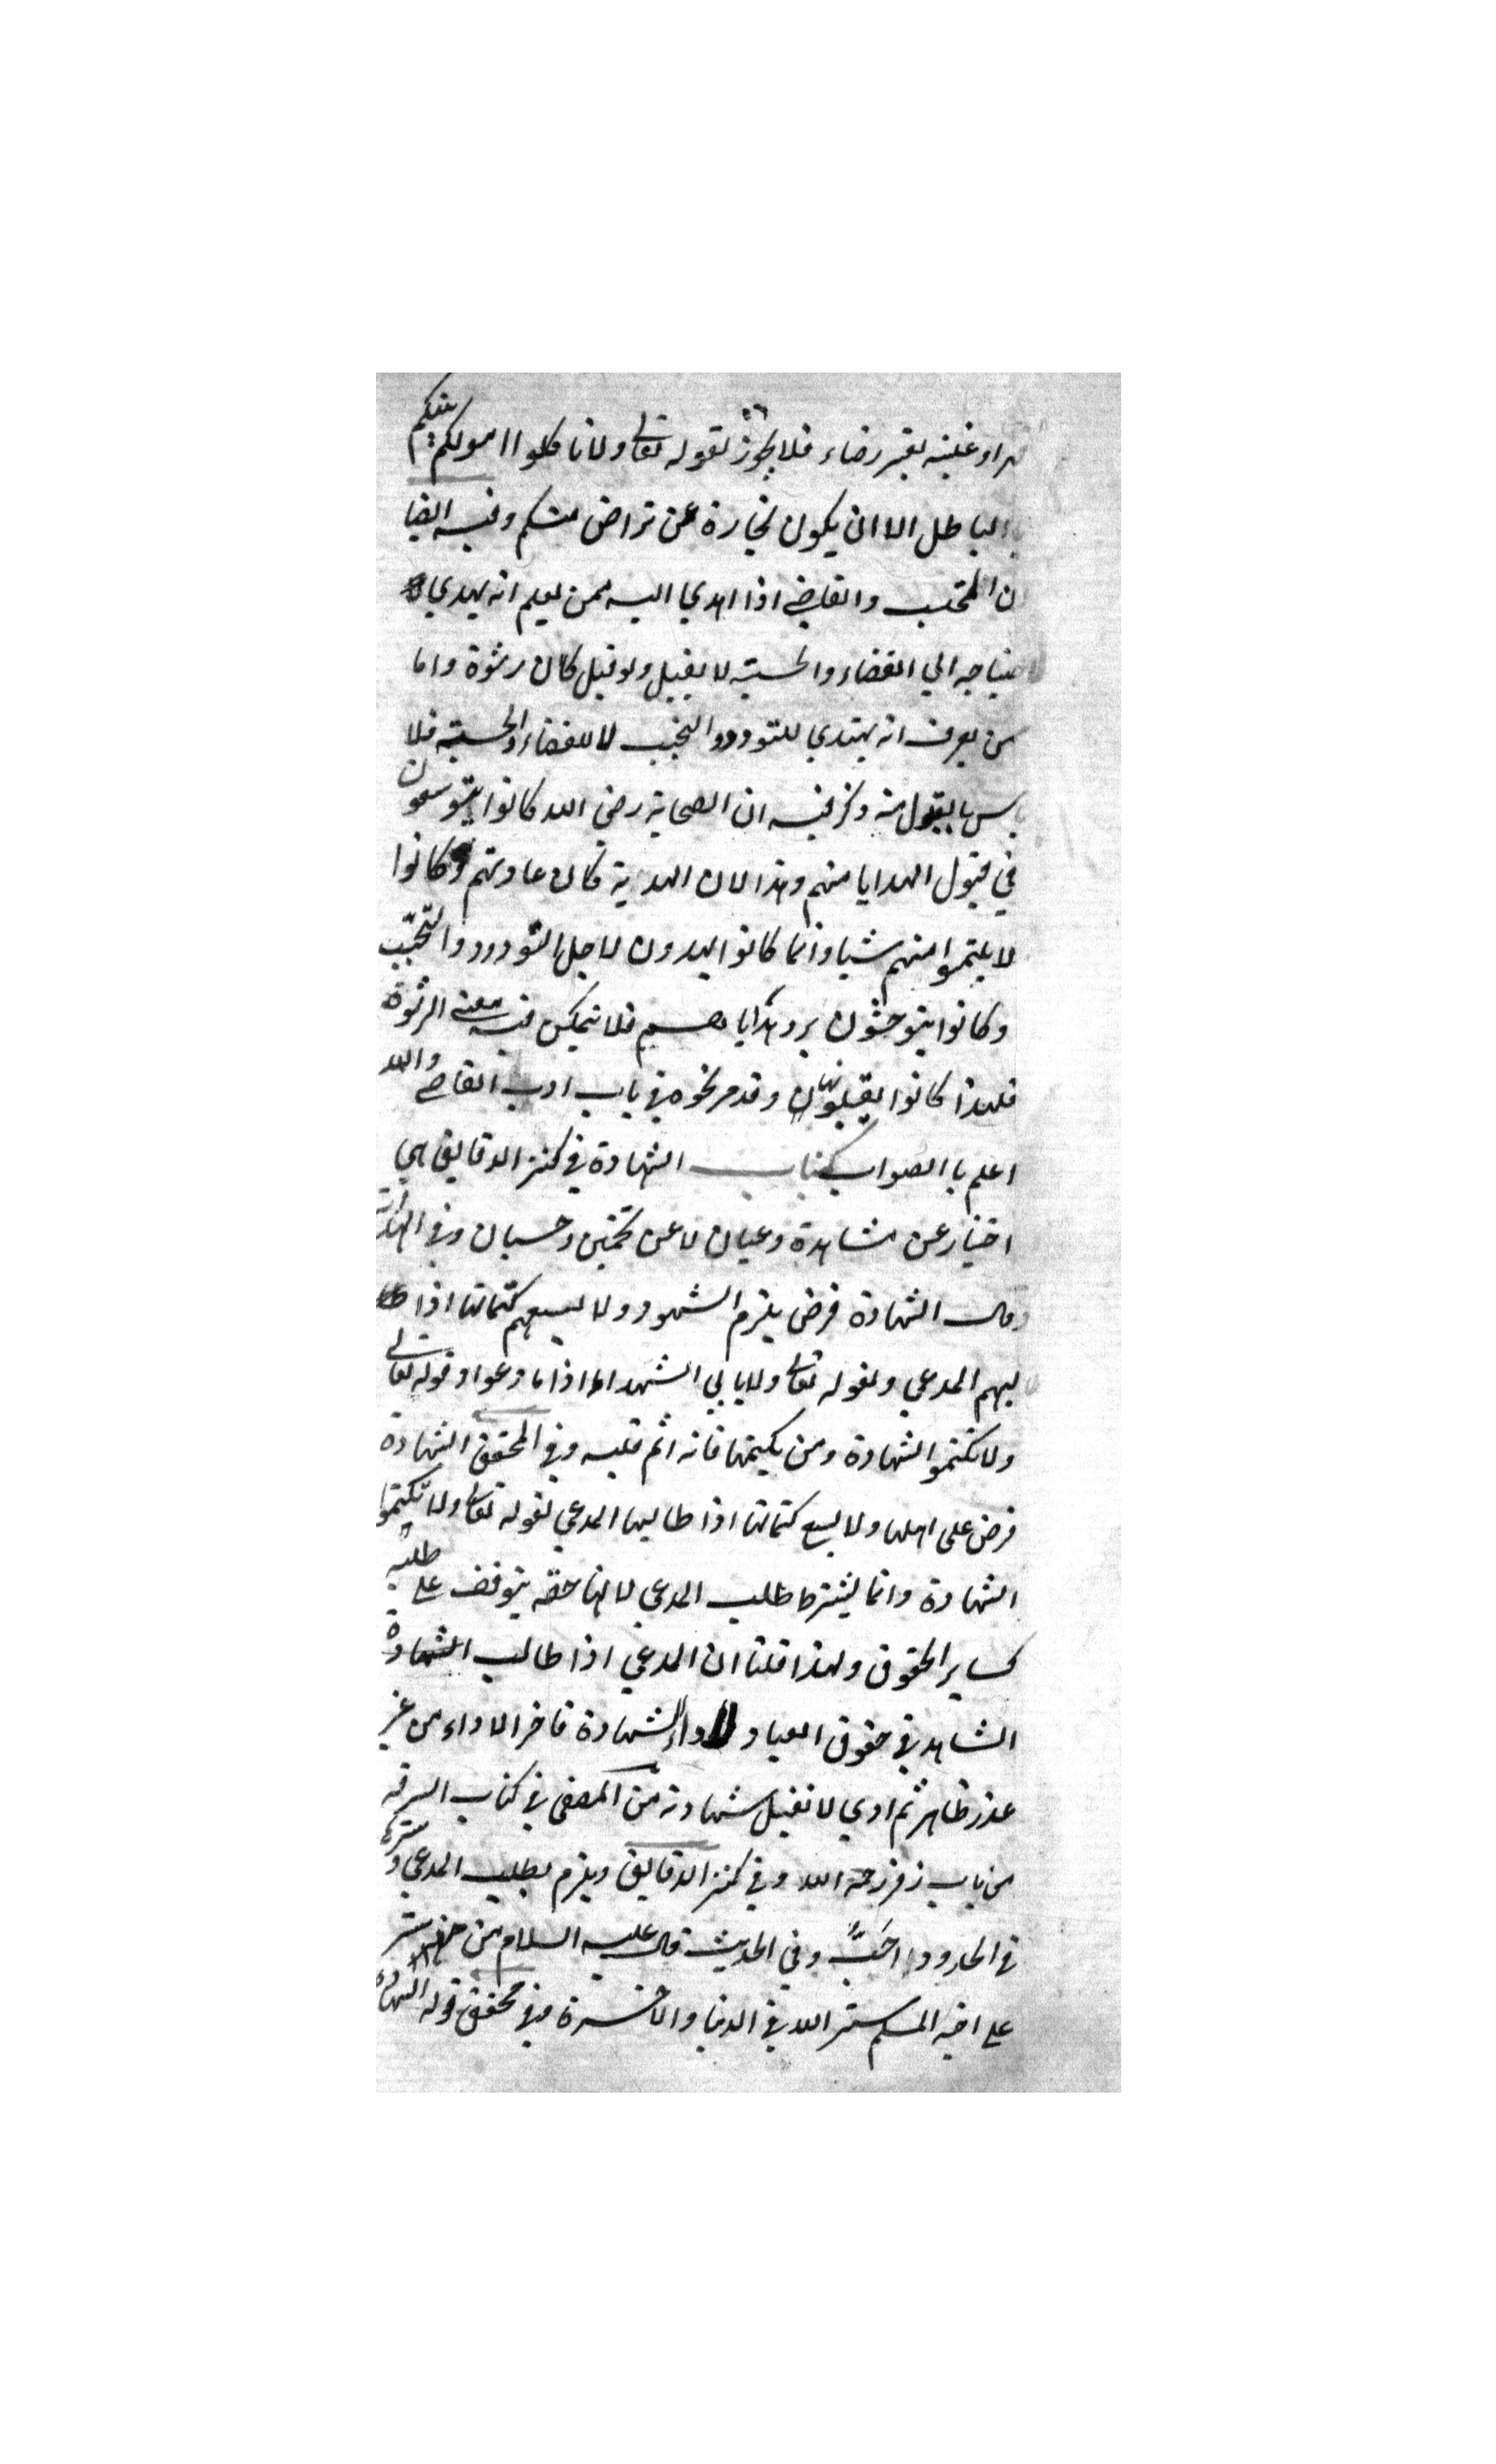 قهرا وغلبة بغير رضاء فلا يجوز لقوله تعالى ولا تاكلوا اموالكم بينكم
بالباطل الا ان يكون تجارة عن تراض منكم وفيه ايضا
ان المحتسب والقاضي اذا اهدي اليه ممن يعلم انه يهدي
لاحتياجه الي القضاء والحسبة لا يقبل ولو قبل كان رشوة واما
من يعرف انه يهتدي للتودد والتحبب لا للقضاء والحسبة فلا
باس بالقبول منه وذكر فيه ان الصحابة رضي الله كانوا يتوسعون
في قبول الهدايا منهم وهذا لان الهدية كان عادتهم وكانوا
لا يلتمسوا منهم شيا وانما كانوا يهدون لاجل التودد والتحبب
وكانوا يتوحشون برد هداياهم فلا يتمكن فيه معنى الرشوة
فلهذا كانوا يقبلونها وقد مر نحوه في باب ادب القاضي والله
اعلم باالصواب كتاب الشهادة في كنز الدقايق هي
اخبار عن مشاهدة وعيان لا عن تخمين وحسبان وفي الهداية
وقال الشهادة فرض يلزم الشهود ولا يسعهم كتمانها اذا
طالبهم المدعي ولقوله تعالى ولا يابي الشهداء اذا ما دعوا وقوله تعالى
ولا تكتموا الشهادة ومن يكتمها فانه اثم قلبه وفي المحقق الشهادة
فرض على اهلها ولا يسع كتمانها اذا طالبها المدعي لقوله تعالى ولا تكتموا
الشهادة وانما يشترط طلب المدعي لانها حقه يتوقف على طلبه
كساير الحقوق ولهذا قلنا ان المدعي اذا طالب الشهادة
الشاهد في حقوق العباد لاداء الشهادة فاخر الاداء من غير
عذر ظاهر ثم ادي لا تقبل شهادته من المصفى في كتاب السرقة
من باب زفر رحمة الله وفي كنز الدقايق ويلزم بطلب المدعي وسترها
في الحدود احَبُّ وفي الحديث قال عليه السلام من ستر
على اخيه المسلم ستر الله في الدنيا والاخرة وفي محقق قوله الشهادة